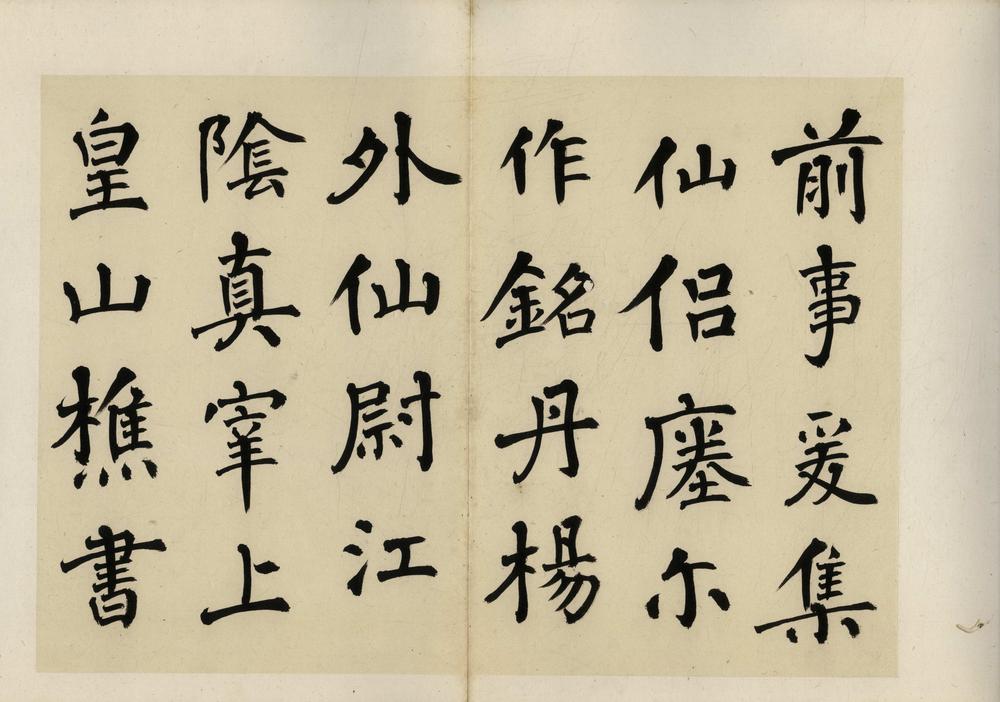 前事爰集
仙侶瘞尓
作銘丹楊
外仙尉江
陰真宰上
皇山樵書